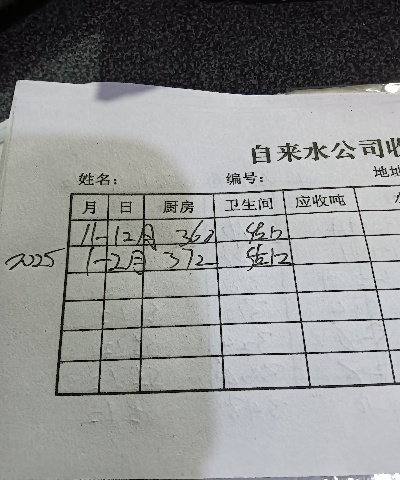 自来水公司收
姓名： 编号： 地址
月 日 厨房 卫生间 应收吨 水
11-12月 362
2025 1-2月 372